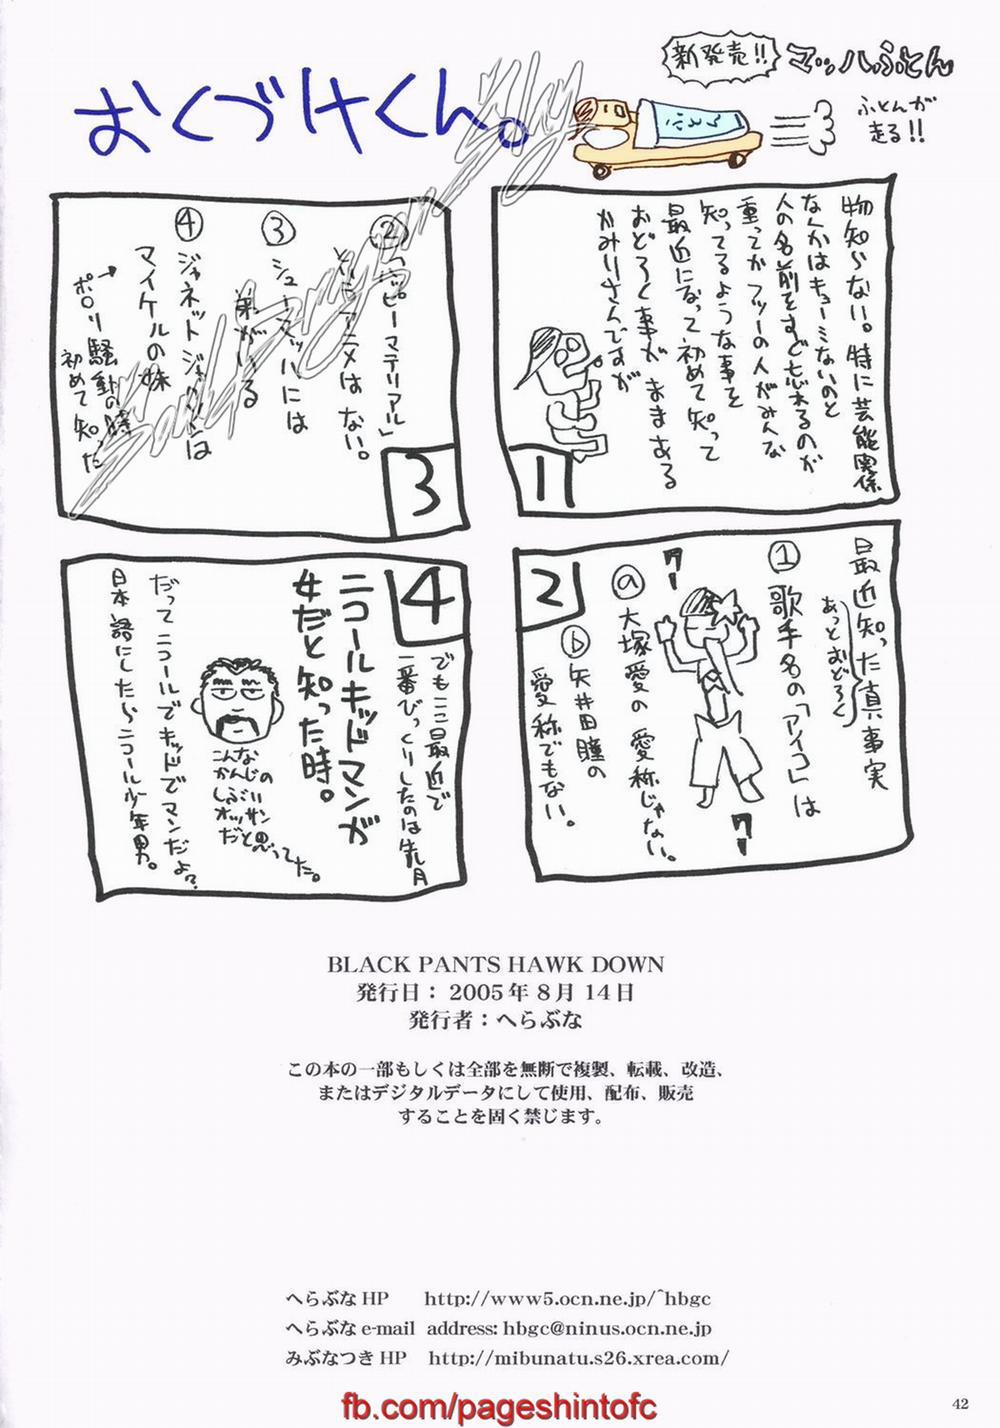 おくづけくん。
新発売!!
マッハふとん
ふとんが
走る!!
ふとん
物知らない。特に芸能関係
なんかはキョーミないのと
人の名前をすぐ忘れるのが
重ってかフツーの人がみんな
知ってるような事を
最近になって初めて知って
おどろく事がままある
かみりさんですが
1
最近知った真事実
あっとおどろく
①歌手名の「アイコ」は
ⓐ大塚愛の愛称じゃない。
ⓑ矢井田瞳の
愛称でもない。
クー
クー
2
②「ハッピーマテリアル」
というアニメはない。
③シューマッハには
弟がいる
④ジャネットジャクソンは
マイケルの妹
→ポロリ騒動の時
初めて知った
3
でもここ最近で
一番びっくりしたのは先月
ニコールキッドマンが
女だと知った時。
こんな
かんじの
しぶいオッサン
だと思ってた。
だってニコールでキッドでマンだよ?
日本語にしたらニコール少年男。
4
BLACK PANTS HAWK DOWN
発行日： 2005年 8月 14日
発行者：へらぶな
この本の一部もしくは全部を無断で複製、転載、改造、
またはデジタルデータにして使用、配布、販売
することを固く禁じます。
へらぶな HP http://www5.ocn.ne.jp/^hbgc
へらぶな e-mail address: hbgc@ninus.ocn.ne.jp
みぶなつき HP http://mibunatu.s26.xrea.com/
42
fb.com/pageshintofc